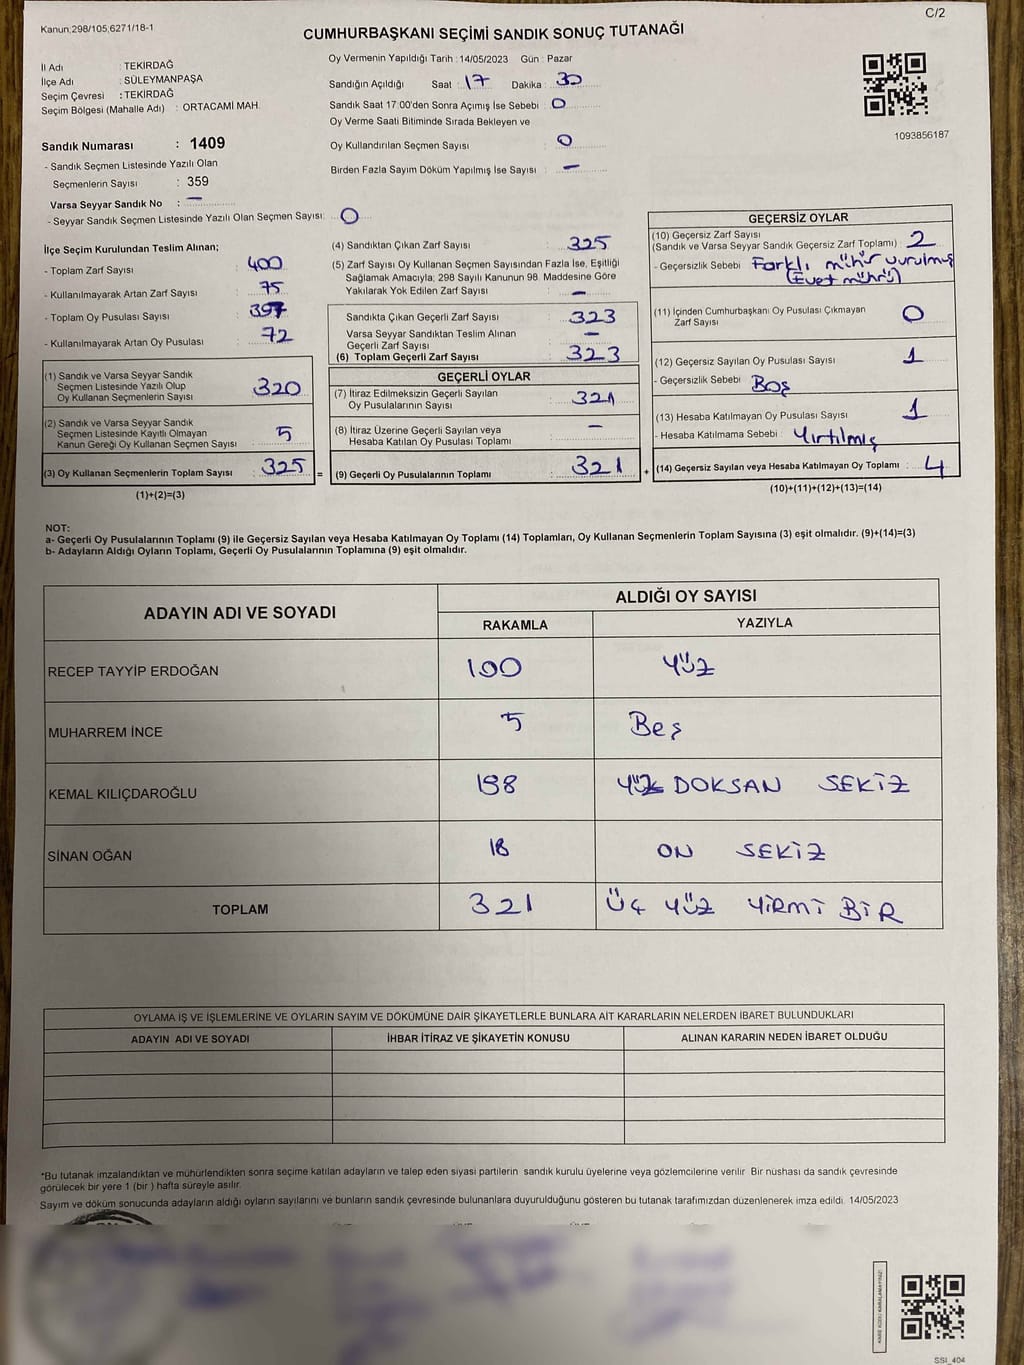 Kanun;298/105;6271/18-1
C/2
CUMHURBAŞKANI SEÇİMİ SANDIK SONUÇ TUTANAĞI
İl Adı : TEKİRDAĞ
İlçe Adı : SÜLEYMANPAŞA
Seçim Çevresi : TEKİRDAĞ
Seçim Bölgesi (Mahalle Adı) : ORTACAMİ MAH.
Sandık Numarası : 1409
- Sandık Seçmen Listesinde Yazılı Olan
Seçmenlerin Sayısı : 359
Varsa Seyyar Sandık No : –
- Seyyar Sandık Seçmen Listesinde Yazılı Olan Seçmen Sayısı: 0
Oy Vermenin Yapıldığı Tarih :14/05/2023 Gün : Pazar
Sandığın Açıldığı Saat : 17 Dakika : 30
Sandık Saat 17:00'den Sonra Açımış İse Sebebi : 0
Oy Verme Saati Bitiminde Sırada Bekleyen ve
Oy Kullandırılan Seçmen Sayısı : 0
Birden Fazla Sayım Döküm Yapılmış İse Sayısı : –
1093856187
İlçe Seçim Kurulundan Teslim Alınan;
- Toplam Zarf Sayısı : 400
- Kullanılmayarak Artan Zarf Sayısı : 75
- Toplam Oy Pusulası Sayısı : 397
- Kullanılmayarak Artan Oy Pusulası : 72
(1) Sandık ve Varsa Seyyar Sandık
Seçmen Listesinde Yazılı Olup
Oy Kullanan Seçmenlerin Sayısı : 320
(2) Sandık ve Varsa Seyyar Sandık
Seçmen Listesinde Kayıtlı Olmayan
Kanun Gereği Oy Kullanan Seçmen Sayısı : 5
(3) Oy Kullanan Seçmenlerin Toplam Sayısı : 325 =
(1)+(2)=(3)
(4) Sandıktan Çıkan Zarf Sayısı : 325
(5) Zarf Sayısı Oy Kullanan Seçmen Sayısından Fazla İse, Eşitliği
Sağlamak Amacıyla; 298 Sayılı Kanunun 98. Maddesine Göre
Yakılarak Yok Edilen Zarf Sayısı : –
Sandıkta Çıkan Geçerli Zarf Sayısı : 323
Varsa Seyyar Sandıktan Teslim Alınan
Geçerli Zarf Sayısı : –
(6) Toplam Geçerli Zarf Sayısı : 323
GEÇERLİ OYLAR
(7) İtiraz Edilmeksizin Geçerli Sayılan
Oy Pusulalarının Sayısı : 321
(8) İtiraz Üzerine Geçerli Sayılan veya
Hesaba Katılan Oy Pusulası Toplamı : –
(9) Geçerli Oy Pusulalarının Toplamı : 321 +
GEÇERSİZ OYLAR
(10) Geçersiz Zarf Sayısı
(Sandık ve Varsa Seyyar Sandık Geçersiz Zarf Toplamı) : 2
- Geçersizlik Sebebi : Farklı mühür vurulmuş
(Evet mührü)
(11) İçinden Cumhurbaşkanı Oy Pusulası Çıkmayan
Zarf Sayısı : 0
(12) Geçersiz Sayılan Oy Pusulası Sayısı : 1
- Geçersizlik Sebebi : Boş
(13) Hesaba Katılmayan Oy Pusulası Sayısı : 1
- Hesaba Katılmama Sebebi : Yırtılmış
(14) Geçersiz Sayılan veya Hesaba Katılmayan Oy Toplamı : 4
(10)+(11)+(12)+(13)=(14)
NOT:
a- Geçerli Oy Pusulalarının Toplamı (9) ile Geçersiz Sayılan veya Hesaba Katılmayan Oy Toplamı (14) Toplamları, Oy Kullanan Seçmenlerin Toplam Sayısına (3) eşit olmalıdır. (9)+(14)=(3)
b- Adayların Aldığı Oyların Toplamı, Geçerli Oy Pusulalarının Toplamına (9) eşit olmalıdır.
ADAYIN ADI VE SOYADI ALDIĞI OY SAYISI
RAKAMLA YAZIYLA
RECEP TAYYİP ERDOĞAN 100 YÜZ
MUHARREM İNCE 5 Beş
KEMAL KILIÇDAROĞLU 198 YÜZ DOKSAN SEKİZ
SİNAN OĞAN 18 ON SEKİZ
TOPLAM 321 ÜÇ YÜZ YİRMİ BİR
OYLAMA İŞ VE İŞLEMLERİNE VE OYLARIN SAYIM VE DÖKÜMÜNE DAİR ŞİKAYETLERLE BUNLARA AİT KARARLARIN NELERDEN İBARET BULUNDUKLARI
ADAYIN ADI VE SOYADI İHBAR İTİRAZ VE ŞİKAYETİN KONUSU ALINAN KARARIN NEDEN İBARET OLDUĞU
*Bu tutanak imzalandıktan ve mühürlendikten sonra seçime katılan adayların ve talep eden siyasi partilerin sandık kurulu üyelerine veya gözlemcilerine verilir Bir nüshası da sandık çevresinde
görülecek bir yere 1 (bir ) hafta süreyle asılır.
Sayım ve döküm sonucunda adayların aldığı oyların sayılarını ve bunların sandık çevresinde bulunanlara duyurulduğunu gösteren bu tutanak tarafımızdan düzenlenerek imza edildi. 14/05/2023
KARE KODU KARALAMAYINIZ!
SSI_404